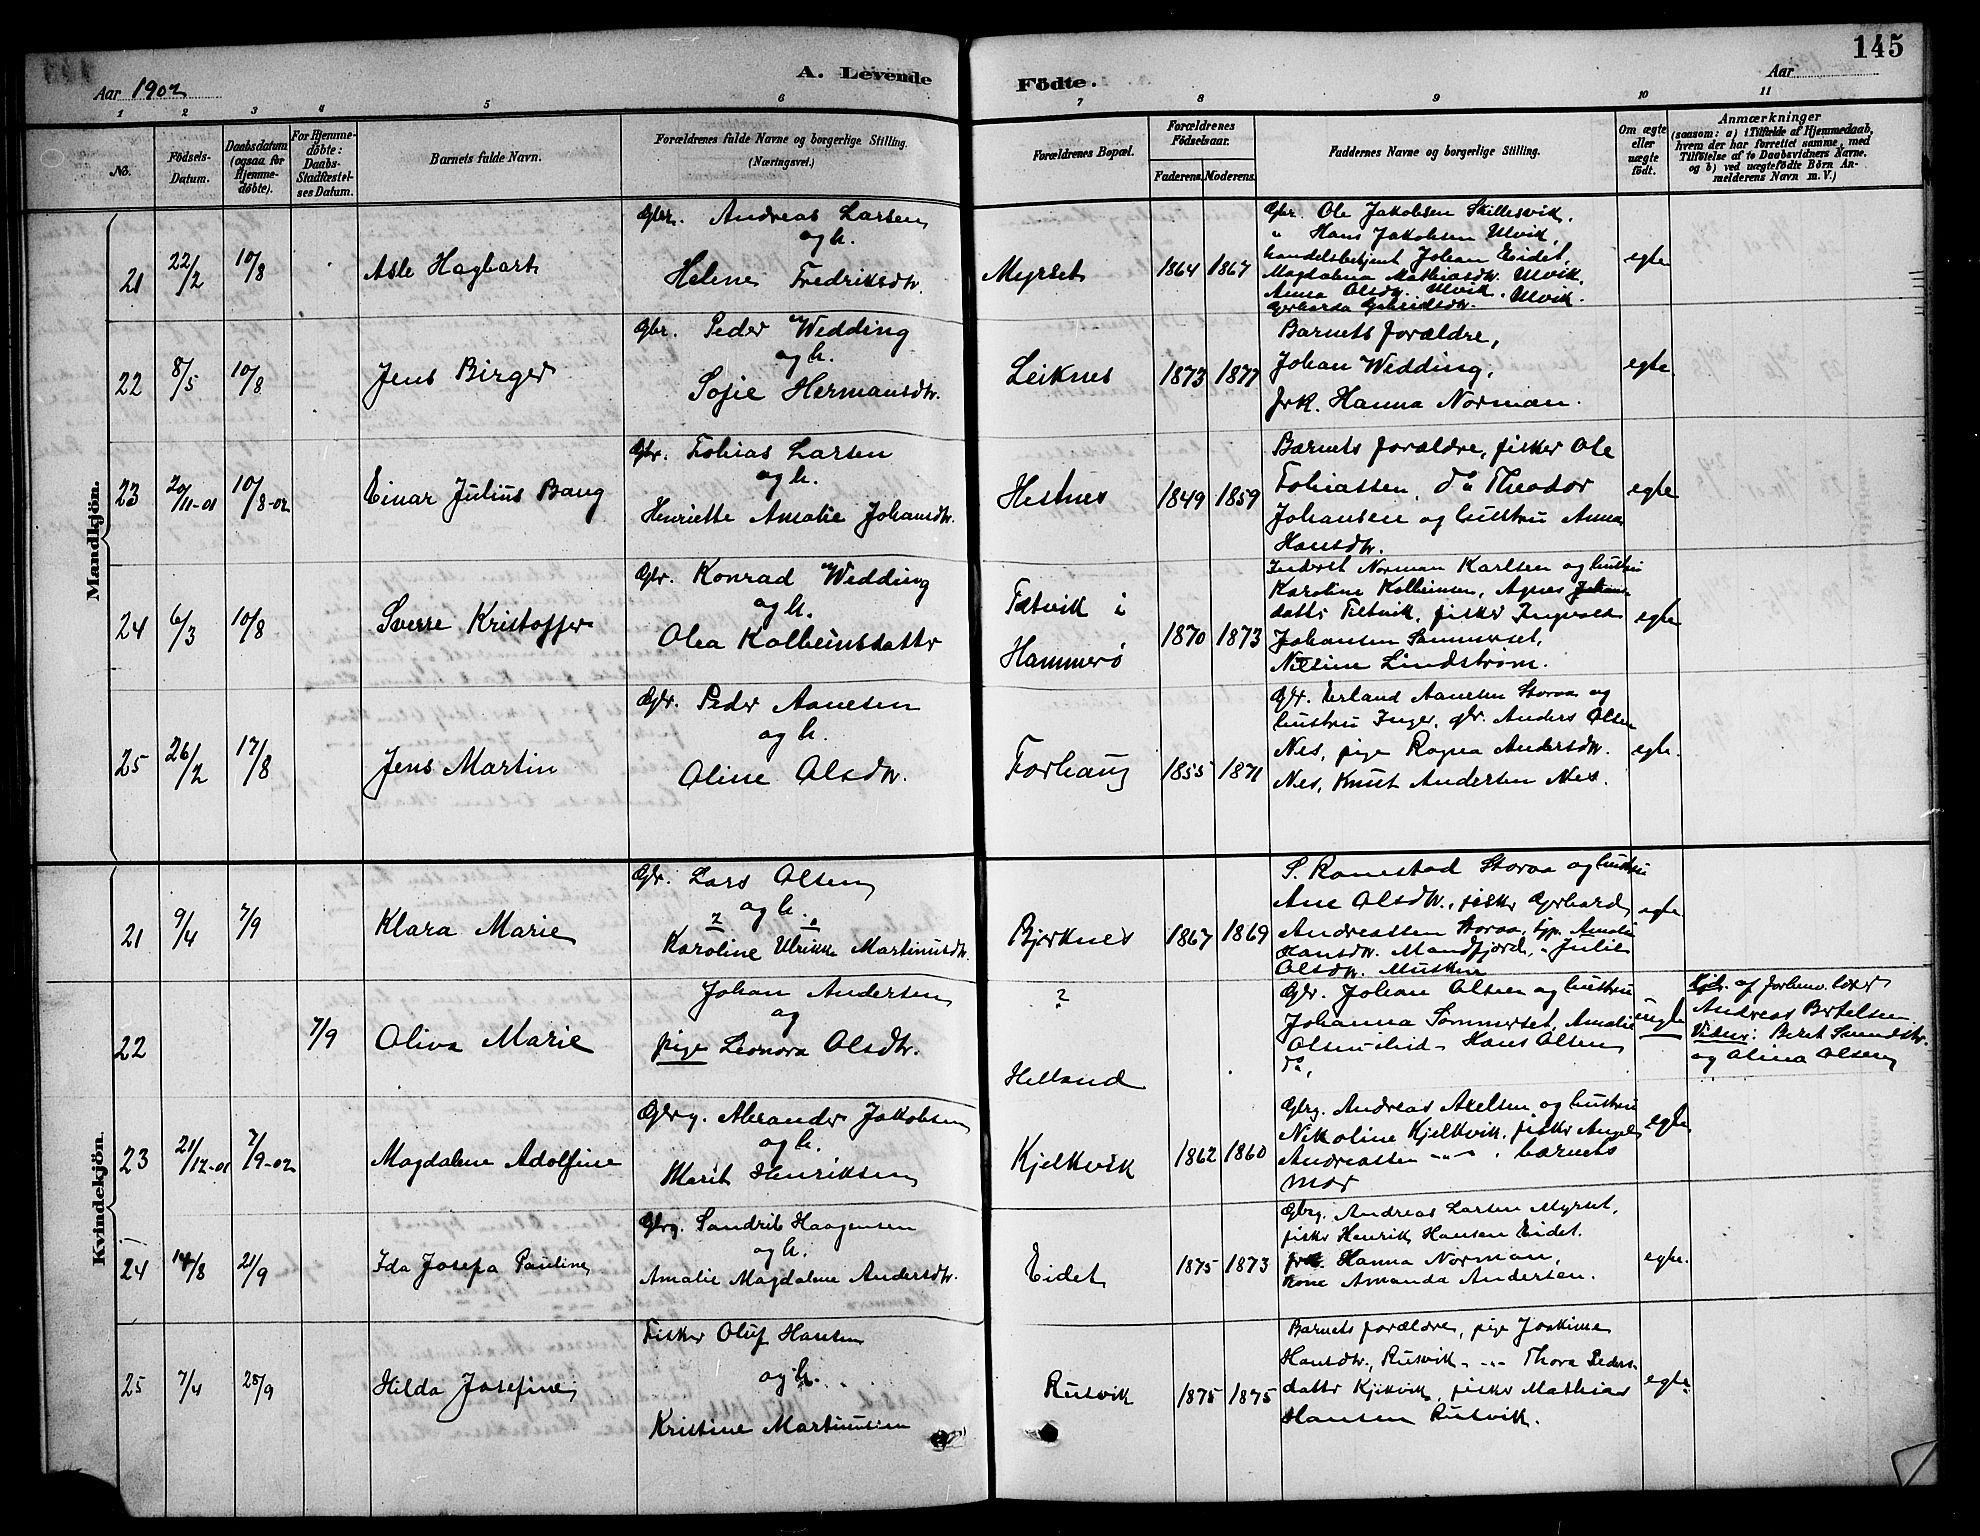 145
A. Levende
Födte.
Aar 1902
Aar
1 2 3 4 5 6 7 8 9 10 11
No.
Födsels-Datum.
Daabsdatum (ogsaa for Hjemme-døbte).
For Hjemme-döbte: Daabs-Stadfæstel-ses Datum.
Barnets fulde Navn.
Forældrenes fulde Navne og borgerlige Stilling.
(Næringsvei.)
Forældrenes Bopæl.
Forældrenes Födselsaar.
Faderens. Moderens.
Faddernes Navne og borgerlige Stilling.
Om ægte eller uægte födt.
Anmærkninger
(saasom: a) i Tilfælde af Hjemmedaab, hvem der har forrettet samme, med Tilföielse af to Daabsvidners Navne, og b) ved uægtefödte Börn An-melderens Navn m. V.)
Mandkjön.
21 22/2 10/8 Asle Hagbart
Gbr. Andreas Larsen
og h.
Helene Fredriksdtr.
Myrset 1864 1867
Gbr. Ole Jakobsen Skillesvik,
" Hans Jakobsen Ulvik,
handelsbetjent Johan Eidet,
Magdalena Mathiasdtr. Ulvik,
Anna Olsdtr. Ulvik, Ulvik.
egte
22 8/5 10/8 Jens Birger
Gbr. Peder Wedding
og h.
Sofie Hermansdtr.
Leiknes 1873 1877
Barnets forældre,
Johan Wedding,
frk. Hanna Norman.
egte
23 20/11-01 10/8-02 Einar Julius Bang
Gbr. Tobias Larsen
og h.
Henriette Amalie Johansdtr.
Hestnes 1849 1859
Barnets forældre, fisker Ole
Tobiassen, do Theodor
Johansen og hustru Anna
Hansdtr.
egte
24 6/3 10/8 Sverre Kristoffer
Gbr. Konrad Wedding
og h.
Olea Kolbeinsdattr
Tætvik i
Hammerö
1870 1873
Inderst Norman Karlsen og hustru
Karoline Kolbeinsen, Agnes Johans
dattr Tiltvik, fisker Ingvald
Johansen Sommerset,
Lindstrøm.
egte
25 26/2 17/8 Jens Martin
Gbr. Peder Aanesen
og h.
Oline Olsdtr.
Forhaug 1855 1871
Gbr. Erland Aanesen Storaa og
hustru Inger, gbr. Anders Olsen
Nes, pige Ragna Andersdtr.
Nes, Knut Andersen Nes.
egte.
Kvindekjön.
21 9/4 7/9 Klara Marie
Gbr. Lars Olsen
og h.
Karoline Ulrikke Martinusdtr.
Bjerknes 1867 1869
S. Ramstad Storaa og hustru
Ane Olsdtr., fisker Gerhard
Andreassen Storaa, Amalie
Hansdtr. Mandfjord, " Julie
Olsdtr. Musken
egte
22 7/9 Oliva Marie
Johan Andersen
og
pige Leonora Olsdtr.
?
Helland
Gbr. Johan Olsen og hustru
Johanna Sommerset, Amalie
Olsen Hans Olsen
do,
uegte
Hjdb. af forhenv. lærer
Andreas Bertelsen
Vidner: Berit
og Olina Olsen
23 21/12-01 7/9-02 Magdalene Adolfine
Gbrg. Alexander Jakobsen
og h.
Marit Henriksen
Kjelkvik 1862 1860
Gbrg. Andreas Axelsen og hustru
Nikoline Kjelkvik, fisker Angel
Andreassen " " , barnets
mor
egte
24 14/8 21/9 Ida Josefa Pauline
Gbrg. Sandrik Haagensen
og h.
Amalie Magdalene Andersdtr.
Eidet 1875 1873
Gbrg. Andreas Larsen Myrset,
fisker Henrik Hansen Eidet.
frk. Hanna Norman,
kone Amanda Andersen.
egte.
25 7/4 28/9 Hilda Josefine
Fisker Oluf Hansen
og h.
Kristine Martinusen
Rusvik 1875 1875
Barnets forældre, pige Joakima
Hansdtr., Rusvik, " " Thora Peders-
datter Kjelkvik, fisker Mathias
Hansen Rusvik.
egte